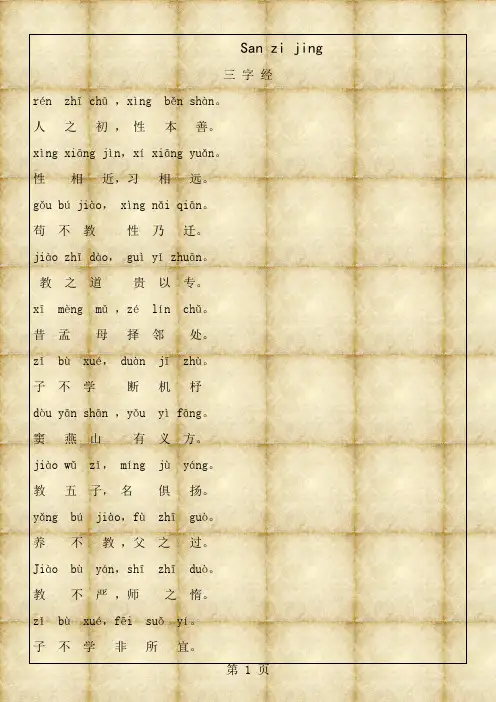 San zi jing
三 字 经
rén zhī chū ，xìng běn shàn。
人 之 初 ，性 本 善。
xìng xiāng jìn，xí xiāng yuǎn。
性 相 近，习 相 远。
gǒu bú jiào， xìng nǎi qiān。
苟 不 教 性 乃 迁。
jiào zhī dào， guì yǐ zhuān。
教 之 道 贵 以 专。
xī mèng mǔ ，zé lín chǔ。
昔 孟 母 择 邻 处。
zǐ bù xué， duàn jī zhù。
子 不 学 断 机 杼
dòu yān shān ，yǒu yì fāng。
窦 燕 山 有 义 方。
jiào wǔ zǐ， míng jù yáng。
教 五 子，名 俱 扬。
yǎng bú jiào，fù zhī guò。
养 不 教 ，父 之 过。
Jiào bù yán，shī zhī duò。
教 不 严 ，师 之 惰。
zǐ bù xué，fēi suǒ yí。
子 不 学 非 所 宜。
第 1 页